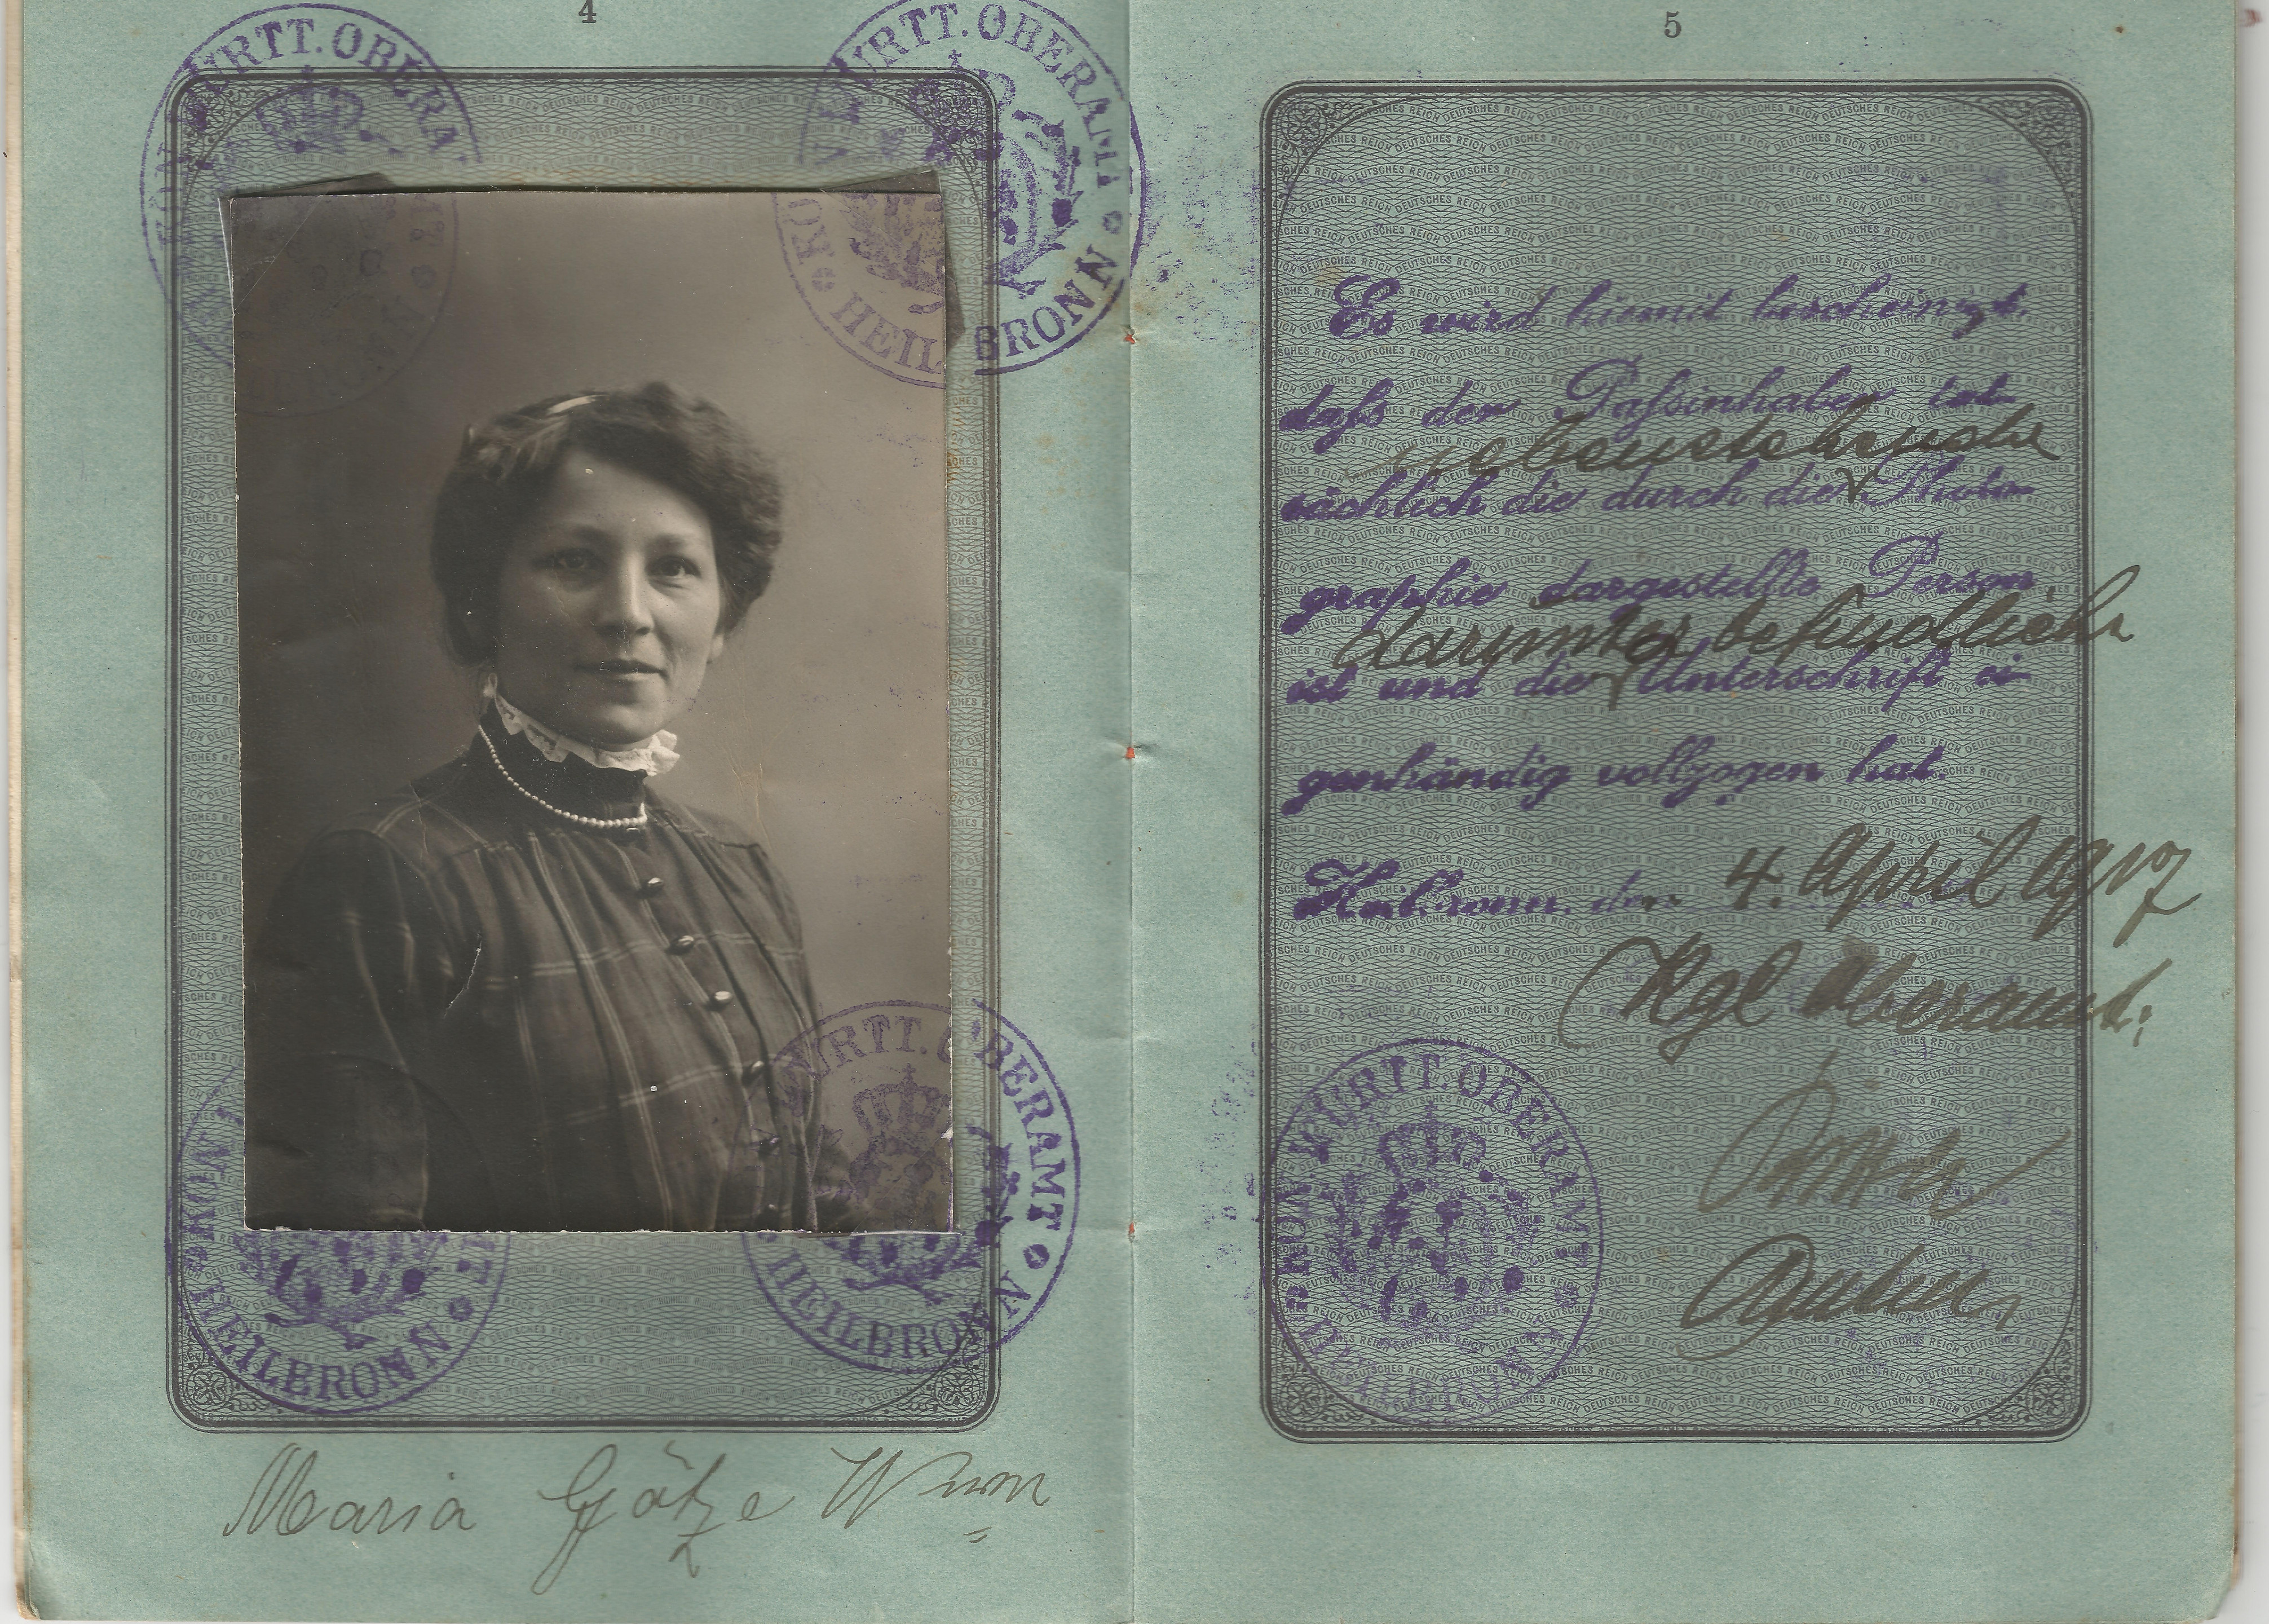 4
KÖN. WÜRTT. OBERAMT
HEILBRONN
KÖN. WÜRTT. OBERAMT
HEILBRONN
KÖN. WÜRTT. OBERAMT
HEILBRONN
KÖN. WÜRTT. OBERAMT
HEILBRONN
Maria Götze
5
Es wird hiemit bescheinigt,
daß der Paßinhaber tat-
nebenstehende
sächlich die durch die Photo-
graphie dargestellte Person
darunter befindliche
ist und die Unterschrift ei-
genhändig vollzogen hat.
Heilbronn, den 4. April 1917
Kgl Oberamt:
KÖN. WÜRTT. OBERAMT
HEILBRONN
DEUTSCHES REICH